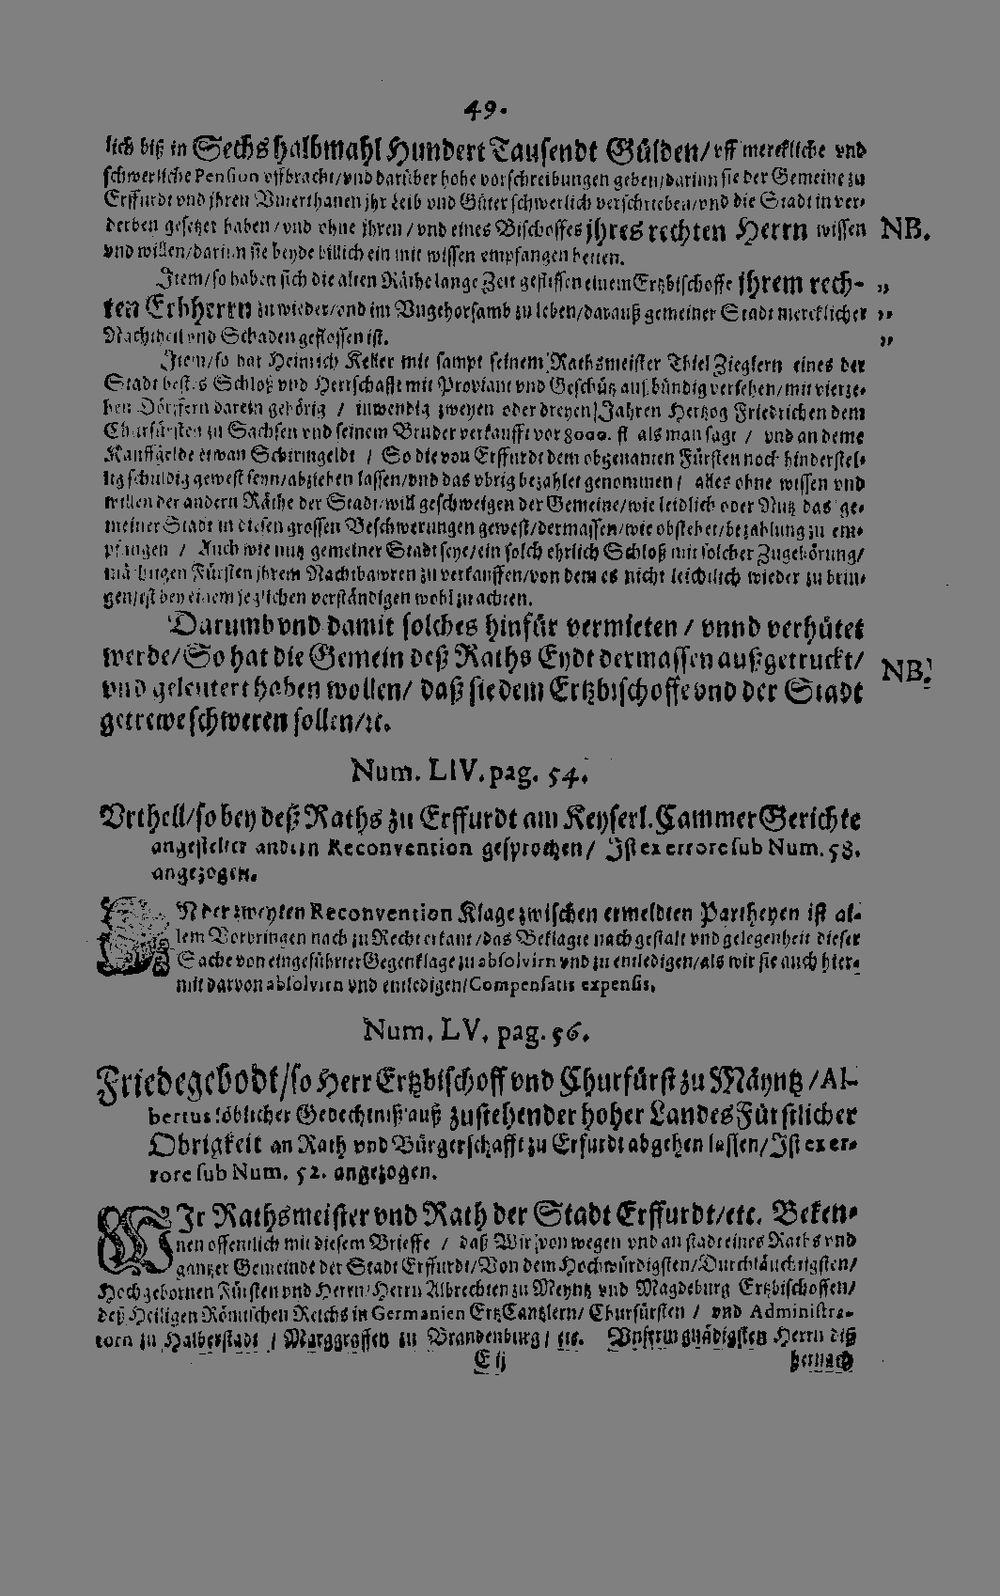 49.
lich biß in Sechshalbmahl Hundert Tausendt Gülden/vff merckliche vnd
schwerliche Pension vffbracht/vnd darüber hohe vorschreibungen geben/darinn sie der Gemeine zu
Erffurdt vnd jhren Vnterthanen jhr Leib vnd Güter schwerlich verschrieben/vnd die Stadt in ver-
derben gesetzet haben/vnd ohne jhren/vnd eines Bischoffes jhres rechten Herrn wissen NB.
vnd willen/darinn sie beyde billich ein mit wissen empfangen hetten.
Item/so haben sich die alten Räthe lange Zeit geflissen einem Ertzbischoffe jhrem rech- „
ten Erbherrn zu wieder/vnd im Vngehorsamb zu leben/darauß gemeiner Stadt mercklicher „
Nachtheil vnd Schaden geflossen ist. „
Item/so hat Heinrich Keller mit sampt seinem Rathsmeister Thiel Zieglern eines der
Stadt bestes Schloß vnd Herrschafft mit Proviant vnd Geschütz außbündig versehen/mit vierze-
hen Dörffern darein gehörig / inwendig zweyen oder dreyen Jahren Hertzog Friedrichen dem
Churfürsten zu Sachsen vnd seinem Bruder verkaufft vor 8000. fl als man sagt / vnd an deme
Kauffgelde etwan Schirmgeldt / So die von Erffurdt dem obgenanten Fürsten noch hinderstel-
lig schuldig gewest seyn/abziehen lassen/vnd das vbrig bezahlet genommen / alles ohne wissen vnd
willen der andern Räthe der Stadt/will geschweigen der Gemeine/wie leidlich oder Nutz das ge-
meiner Stadt in diesen grossen Beschwerungen gewest/dermassen/wie obstehet/bezahlung zu em-
pfangen / Auch wie nutz gemeiner Stadt seye/ein solch ehrlich Schloß mit solcher Zugehörung/
mächtigen Fürsten jhrem Nachtbawren zu verkauffen/von dem es nicht leichtlich wieder zu brin-
gen/ist bey einem jezlichen verständigen wohl zu achten.
Darumb vnd damit solches hinfür vermieten / vnnd verhütet
werde/So hat die Gemein deß Raths Eydt dermassen außgetruckt/ NB.
vnd geleutert haben wollen/ daß sie dem Ertzbischoffe vnd der Stadt
getrewe schweren sollen/ꝛc.
Num. LIV. pag. 54.
Vrthell/so bey deß Raths zu Erffurdt am Keyserl. Cammer Gerichte
angestelter andern Reconvention gesprochen/ Ist ex errore sub Num. 58.
angezogen.
IN der zweyten Reconvention Klage zwischen ermeldten Partheyen ist al-
lem Vorbringen nach zu Recht erkant/das Beklagte nach gestalt vnd gelegenheit dieser
Sache von eingeführter Gegenklage zu absolvirn vnd zu entledigen/als wir sie auch hier-
mit darvon absolvirn vnd entledigen/Compensatis expensis.
Num. LV. pag. 56.
Friedegebodt/so Herr Ertzbischoff vnd Churfürst zu Mäyntz / Al-
bertus löblicher Gedechtniß auß zustehender hoher LandesFürstlicher
Obrigkeit an Rath vnd Bürgerschafft zu Erfurdt abgehen lassen/Ist ex er-
rore sub Num. 52. angezogen.
WIr Rathsmeister vnd Rath der Stadt Erffurdt/etc. Beken-
nen offentlich mit diesem Brieffe / daß Wir von wegen vnd an stadt eines Raths vnd
gantzer Gemeinde der Stadt Erffurdt/Von dem Hochwürdigsten/Durchläuchtigsten/
Hochgebornen Fürsten vnd Herrn/Herrn Albrechten zu Meyntz vnd Magdeburg Ertzbischoffen/
deß Heiligen Römischen Reichs in Germanien ErtzCantzlern/ Churfürsten / vnd Administra-
torn zu Halberstadt / Marggraffen zu Brandenburg / etc. Vnserm gnädigsten Herrn diß
E ij hernach